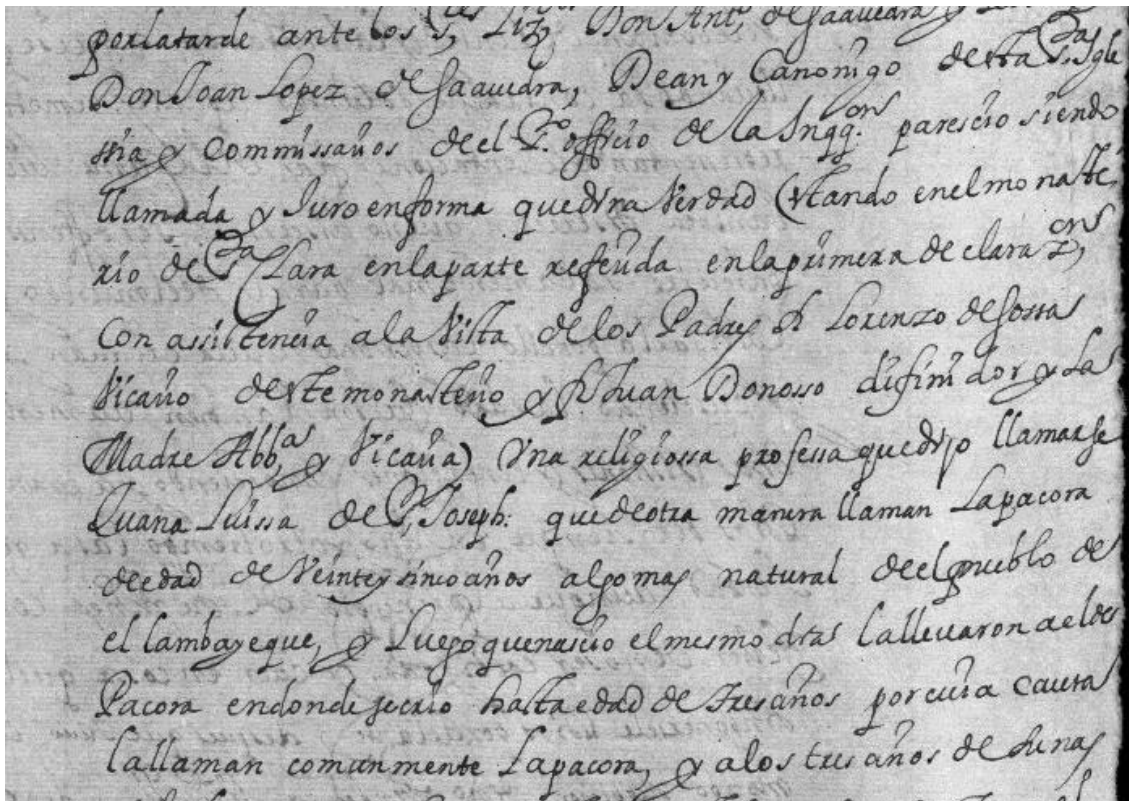 por la tarde ante los s.s Liz.dos Don Ant.o de Saavedra y
Don Joan Lopez de Saavedra, Dean y Canonigo desta S.ta Igle
sia y Commissarios de el S.to officio de la Inqq.on parescio siendo
llamada y Juro en forma que dira Verdad (estando en el monaste
rio de S.ta Clara en la parte referida en la primera declaraz.on
Con assistencia a la Vista de los Padres fr Lorenzo de Sossa
Vicario deste monasterio y fr Juan Donosso difinidor y La
Madre Abb.as y Vicaria) Una religiossa professa que dijo llamarse
Juana Luissa de S. Joseph: que de otra manera llaman La pacora
de edad de Veinte y sinco años algo mas natural de el pueblo de
el lambayeque, y Luego que nascio el mesmo dia la llevaron a el de
Pacora en donde se crio hasta edad de tres años por cuia causa
la llaman comunmente La pacora, y a los tres años de